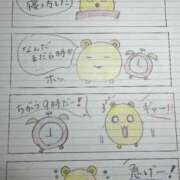 寝坊した
なんだ
まだ6時か
ホッ
ちがう9時だー!
ギャー!
急げー!